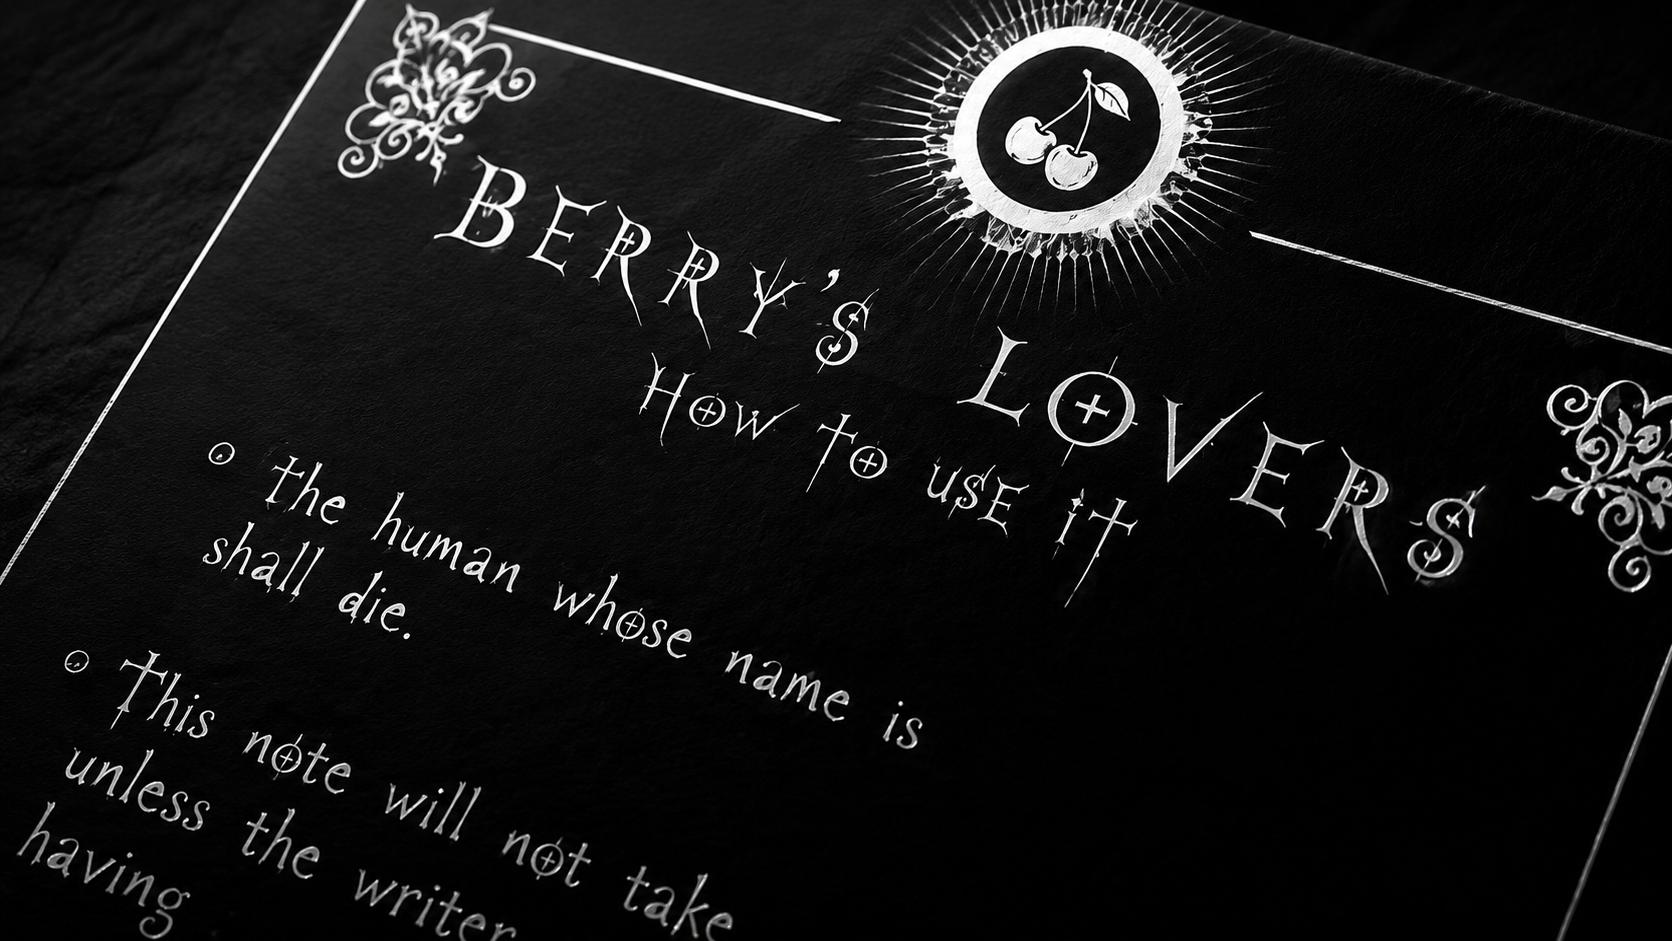 BERRY'S LOVERS
HOW TO USE IT
The human whose name is
shall die.
This note will not take
unless the writer
having